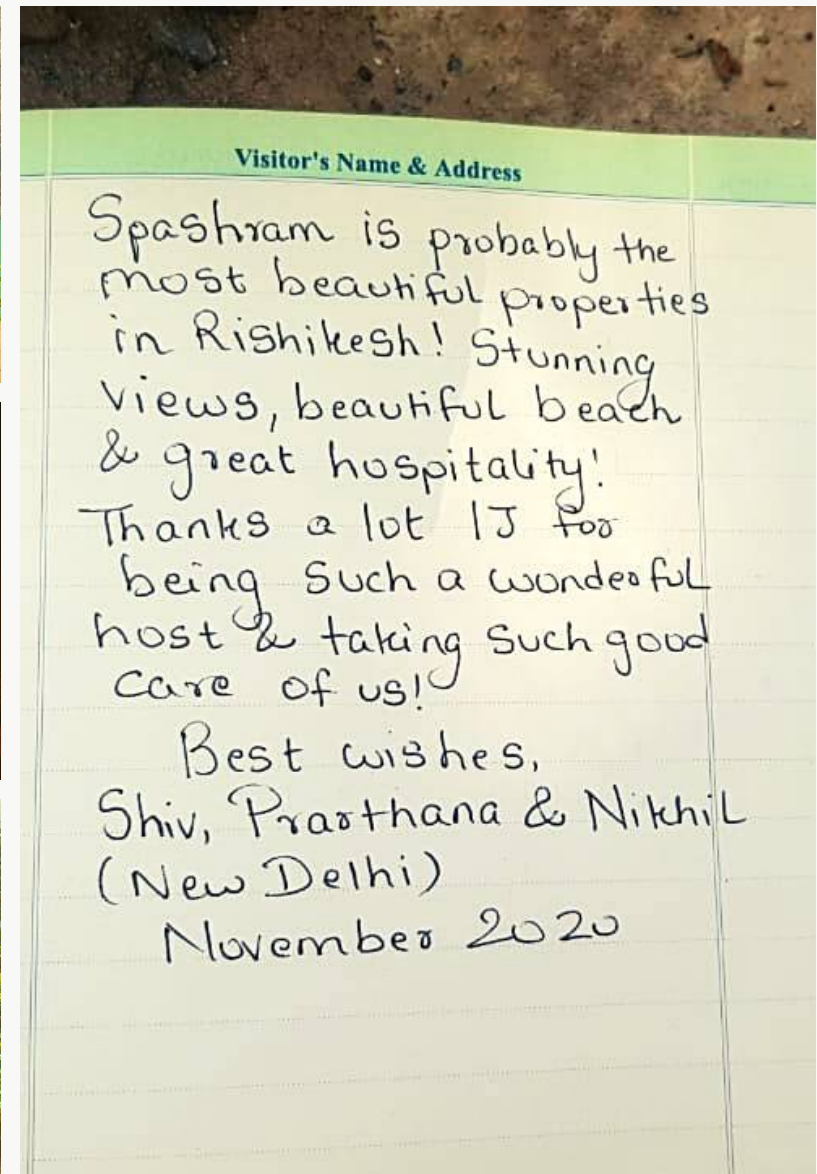 Visitor's Name & Address
Spashram is probably the
most beautiful properties
in Rishikesh! Stunning
views, beautiful beach
& great hospitality!
Thanks a lot IJ for
being such a wonderful
host & taking such good
care of us!
Best wishes,
Shiv, Prarthana & Nikhil
(New Delhi)
November 2020